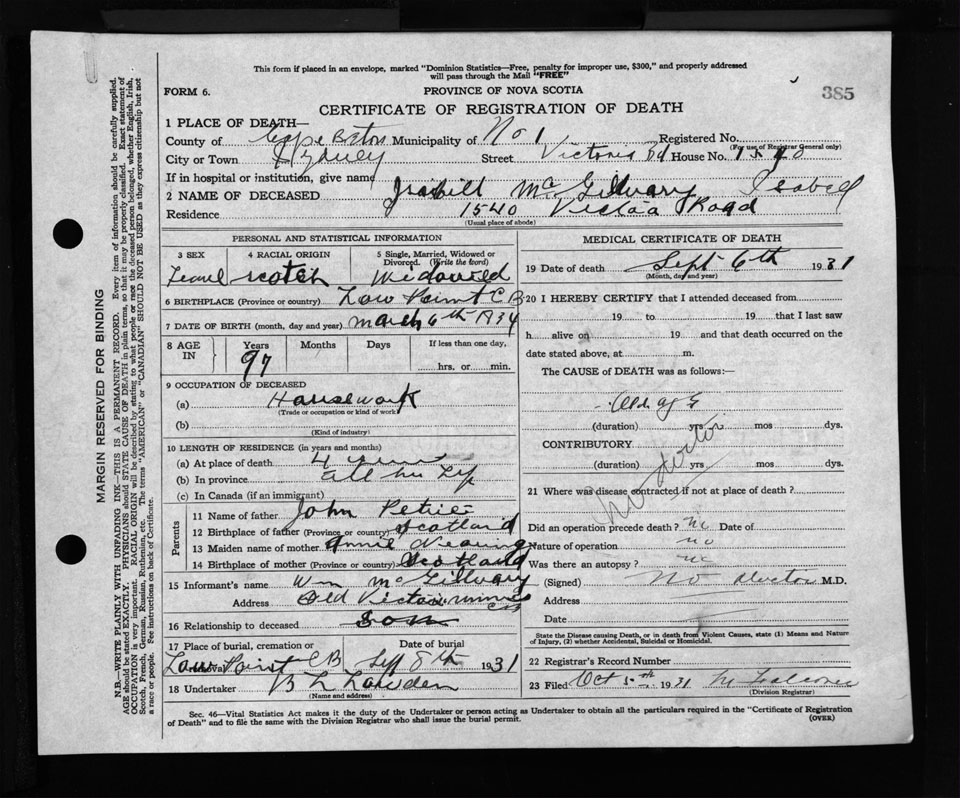 This form if placed in an envelope, marked "Dominion Statistics—Free, penalty for improper use, $300," and properly addressed
will pass through the Mail "FREE"
FORM 6.
PROVINCE OF NOVA SCOTIA
385
CERTIFICATE OF REGISTRATION OF DEATH
1 PLACE OF DEATH—
County of Cape Breton Municipality of No 1 Registered No.
(For use of Registrar General only)
City or Town Sydney Street Victoria Rd House No. 1540
If in hospital or institution, give name
2 NAME OF DECEASED Isabell McGillvary Isabell
Residence 1540 Victoia Road
(Usual place of abode)
PERSONAL AND STATISTICAL INFORMATION
3 SEX 4 RACIAL ORIGIN 5 Single, Married, Widowed or Divorced. (Write the word)
Scotch Widowed
6 BIRTHPLACE (Province or country) Low Point C B
7 DATE OF BIRTH (month, day and year) March 6th 1834
8 AGE IN Years Months Days If less than one day,
97 hrs. or min.
9 OCCUPATION OF DECEASED
(a) Housework
(Trade or occupation or kind of work)
(b)
(Kind of industry)
10 LENGTH OF RESIDENCE (in years and months)
(a) At place of death 4 years
(b) In province all his
(c) In Canada (if an immigrant)
Parents
11 Name of father John Petrie
12 Birthplace of father (Province or country) Scotland
13 Maiden name of mother Annie Nearing
14 Birthplace of mother (Province or country) Scotland
15 Informant's name Wm McGillvary
Address Old Victoia mines
16 Relationship to deceased Son
17 Place of burial, cremation or removal Date of burial
Low Point C B Sep 8th 1931
18 Undertaker
(Name and address)
MEDICAL CERTIFICATE OF DEATH
19 Date of death Sept 6th 1931
(Month, day and year)
20 I HEREBY CERTIFY that I attended deceased from
19 to 19 that I last saw
h alive on 19 and that death occurred on the
date stated above, at m.
The CAUSE of DEATH was as follows:—
Old age
(duration) yrs mos dys.
CONTRIBUTORY
(duration) yrs mos dys.
no doctor
21 Where was disease contracted if not at place of death?
Did an operation precede death? no Date of
Nature of operation no
Was there an autopsy? no
(Signed) No doctor M.D.
Address
Date
State the Disease causing Death, or in death from Violent Causes, state (1) Means and Nature
of Injury, (2) whether Accidental, Suicidal or Homicidal.
22 Registrar's Record Number
23 Filed Oct 5th 1931
(Division Registrar)
Sec. 46—Vital Statistics Act makes it the duty of the Undertaker or person acting as Undertaker to obtain all the particulars required in the "Certificate of Registration
of Death" and to file the same with the Division Registrar who shall issue the burial permit.
(OVER)
MARGIN RESERVED FOR BINDING
N.B.—WRITE PLAINLY WITH UNFADING INK—THIS IS A PERMANENT RECORD. Every item of information should be carefully supplied.
AGE should be stated EXACTLY. PHYSICIANS should STATE CAUSE OF DEATH in plain terms, so that it may be properly classified. Exact statement of
OCCUPATION is very important. RACIAL ORIGIN will be described by stating to what people or race the deceased person belonged, whether English, Irish,
Scotch, French, German, Russian, Ruthenian, etc. The terms "AMERICAN" or "CANADIAN" SHOULD NOT BE USED as they express citizenship but not
a race or people. See instructions on back of Certificate.